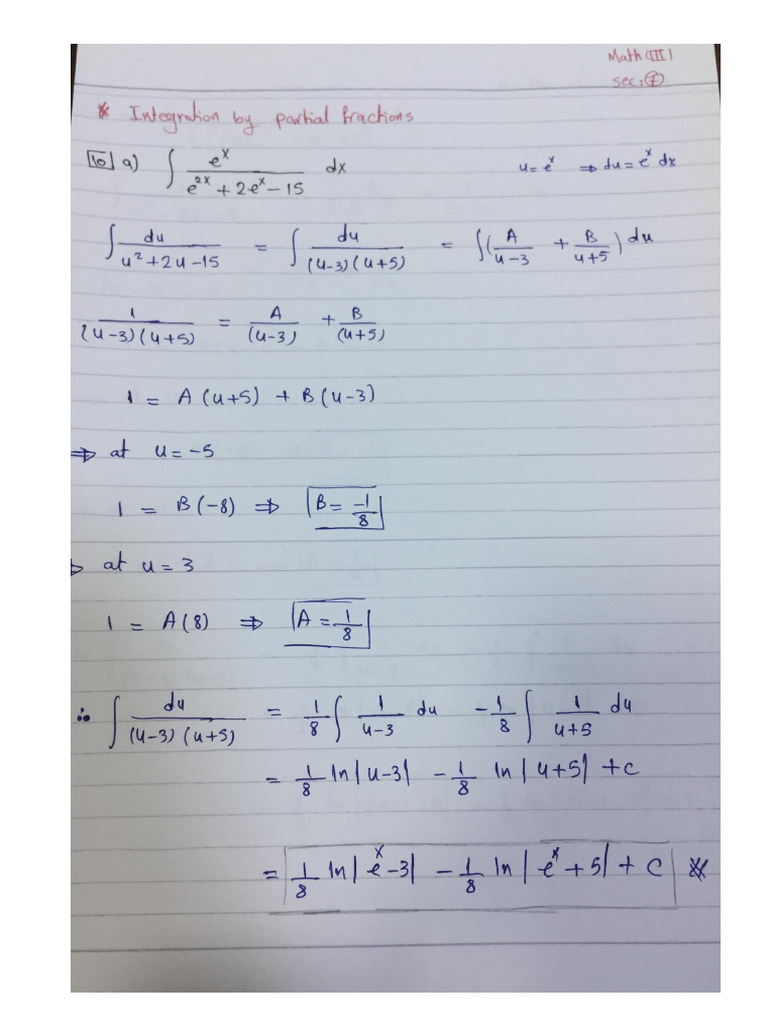 Math (III)
sec: ④
* Integration by partial fractions
10 a) ∫ e^x / (e^2x + 2e^x - 15) dx    u = e^x ⇒ du = e^x dx
∫ du / (u² + 2u - 15) = ∫ du / ((u-3)(u+5)) = ∫ (A/(u-3) + B/(u+5)) du
1 / ((u-3)(u+5)) = A/(u-3) + B/(u+5)
1 = A(u+5) + B(u-3)
⇒ at u = -5
1 = B(-8) ⇒ B = -1/8
⇒ at u = 3
1 = A(8) ⇒ A = 1/8
∴ ∫ du / ((u-3)(u+5)) = 1/8 ∫ 1/(u-3) du - 1/8 ∫ 1/(u+5) du
= 1/8 ln|u-3| - 1/8 ln|u+5| + c
= 1/8 ln|e^x - 3| - 1/8 ln|e^x + 5| + c